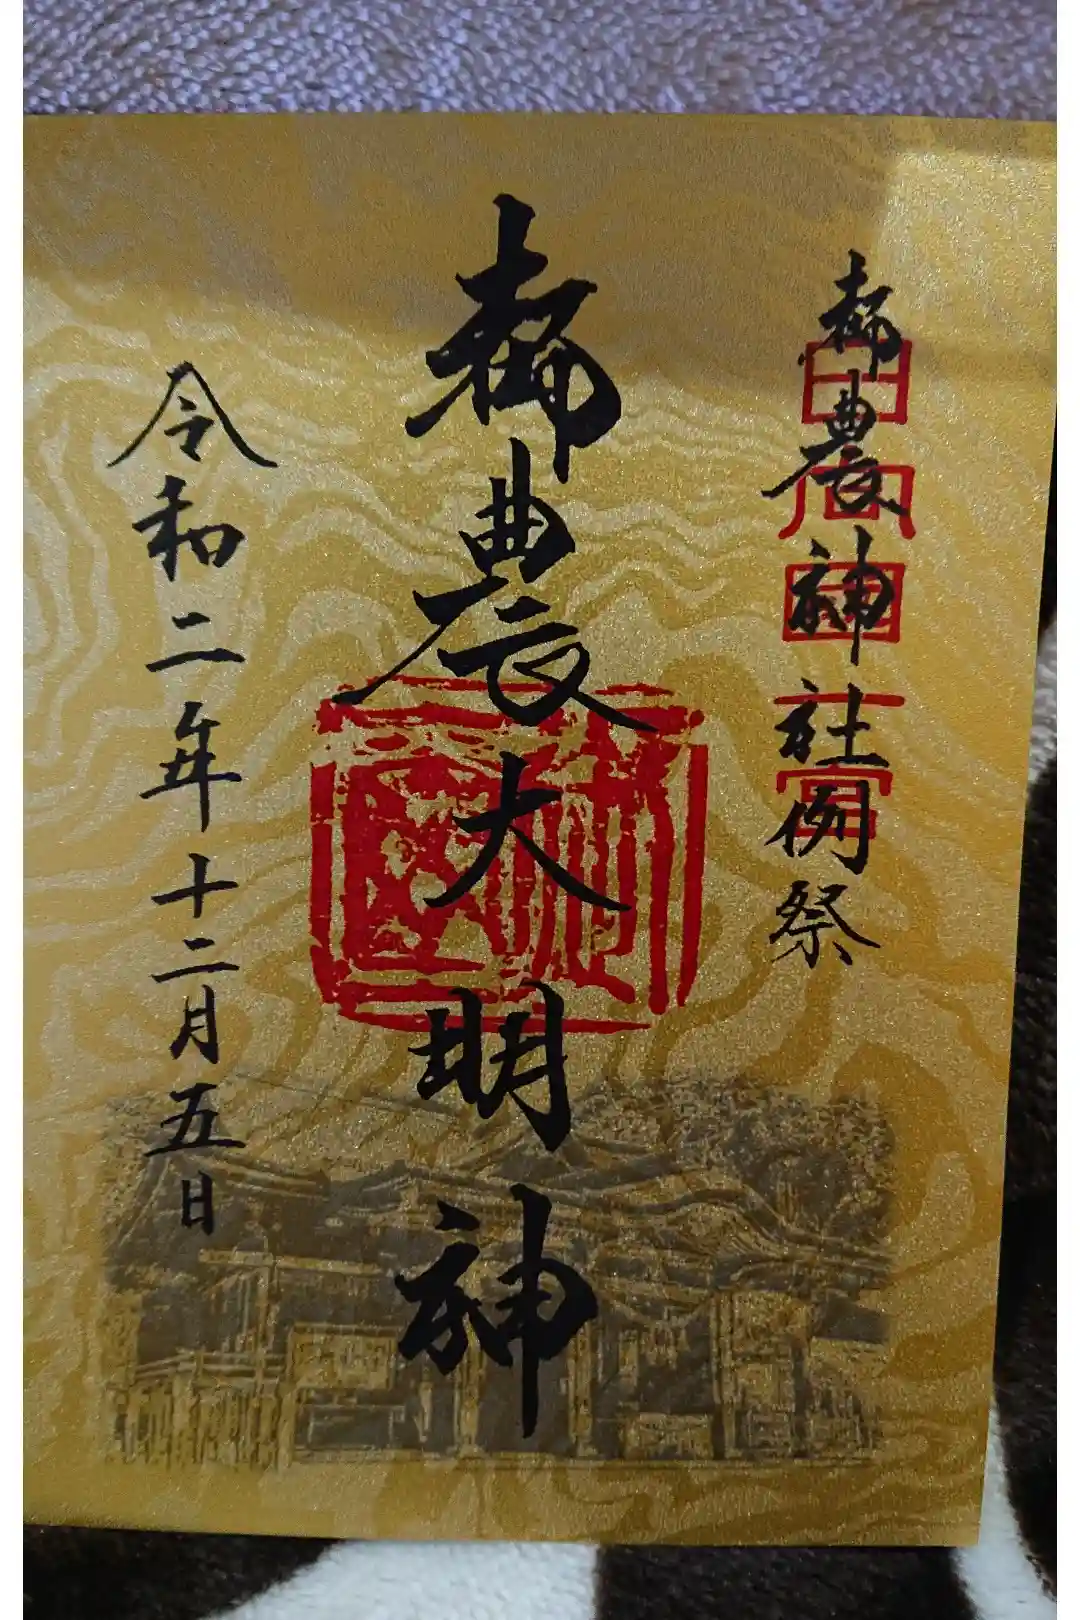 日向国一宮
都農神社例祭
都農大明神
令和二年十二月五日